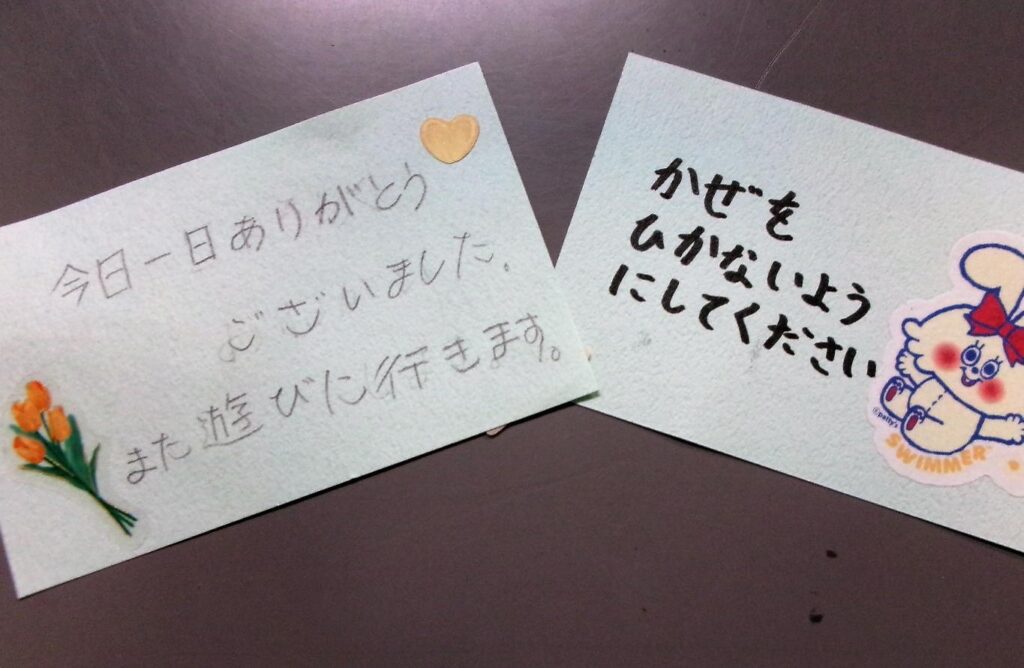 今日一日ありがとう
ございました。
また遊びに行きます。
かぜを
ひかないよう
にしてください
©patty's
SWIMMER